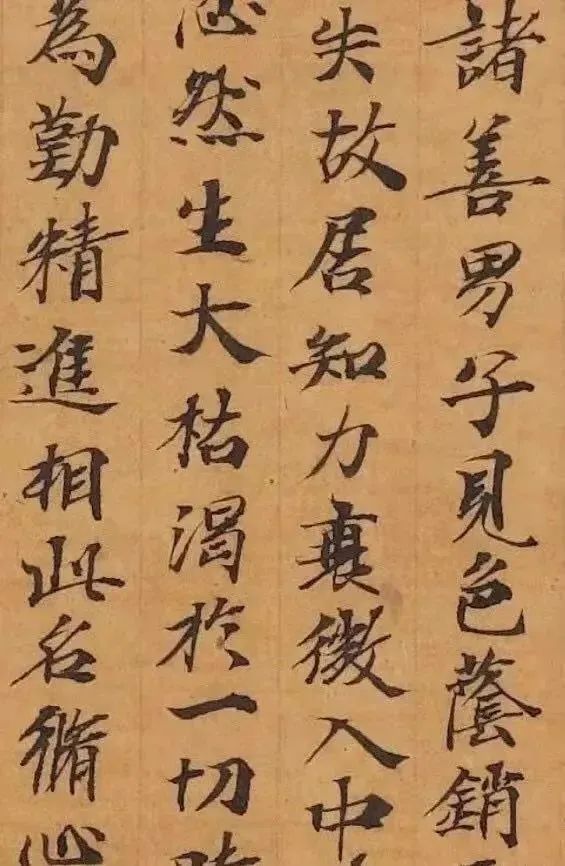 諸善男子見色蔭銷
失故居知力衰微入中
然生大枯渴於一切
為勤精進相此名脩心